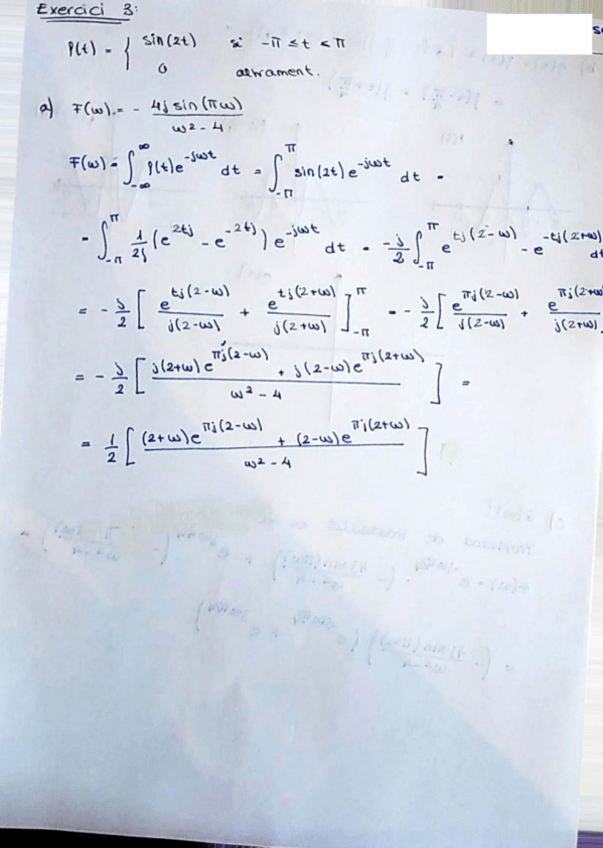 Exercici 3:
f(t) = { sin(2t) si -π ≤ t ≤ π
0 altrament.
a) F(ω) = - 4j sin(πω) / ω² - 4
F(ω) = ∫_{-∞}^{∞} f(t) e^{-jωt} dt = ∫_{-π}^{π} sin(2t) e^{-jωt} dt =
= ∫_{-π}^{π} 1/2j (e^{2tj} - e^{-2tj}) e^{-jωt} dt = -j/2 ∫_{-π}^{π} e^{tj(2-ω)} - e^{-tj(2+ω)} dt
= -j/2 [ e^{tj(2-ω)} / j(2-ω) + e^{tj(2+ω)} / j(2+ω) ]_{-π}^{π} = -j/2 [ e^{πj(2-ω)} / j(2-ω) + e^{πj(2+ω)} / j(2+ω)
= -j/2 [ j(2+ω) e^{πj(2-ω)} + j(2-ω) e^{πj(2+ω)} / ω² - 4 ] =
= 1/2 [ (2+ω) e^{πj(2-ω)} + (2-ω) e^{πj(2+ω)} / ω² - 4 ]